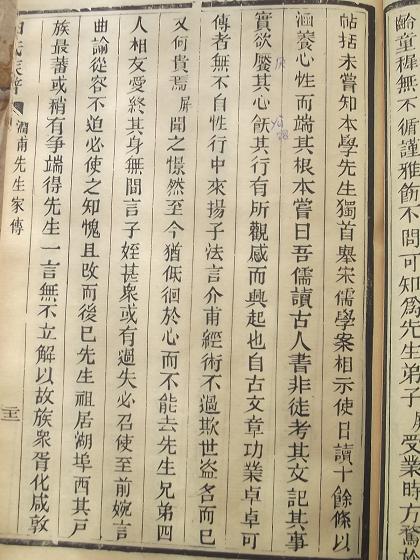 齡童穉無不循謹雅飭不問可知爲先生弟子屏受業時方騖
帖括未嘗知本學先生獨首舉宋儒學案相示使日讀十餘條以
涵養心性而端其根本嘗曰吾儒讀古人書非徒考其文記其事
實欲饜其心飫其行有所觀感而興起也自古文章功業卓卓可
傳者無不自性行中來揚子法言介甫經術不過欺世盜名而已
又何貴焉屏聞之憬然至今猶低徊於心而不能去先生兄弟四
人相友愛終其身無間言子姪甚衆或有過失必召使至前婉言
曲諭從容不迫必使之知愧且改而後已先生祖居湖埠西其戸
族最蕃或稍有爭端得先生一言無不立解以故族衆胥化咸敦
澗甫先生家傳